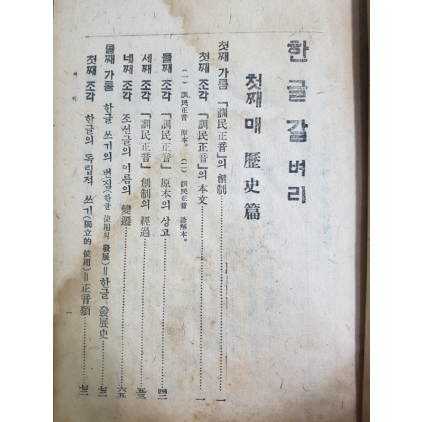 한글갈 벼리
첫째 매 歷史篇
첫째 가름 『訓民正音』의 創制……一
첫째 조각 『訓民正音』의 本文……一
(一) 訓民正音 原本。(二) 訓民正音 諺解本。
둘째 조각 『訓民正音』原本의 상고……四二
세째 조각 『訓民正音』創制의 經過……五三
네째 조각 조선글의 이름의 變遷……六五
둘째 가름 한글 쓰기의 번짐(한글 使用의 發展)=한글 發展史
첫째 조각 한글의 독립적 쓰기(獨立的 使用)=正音類